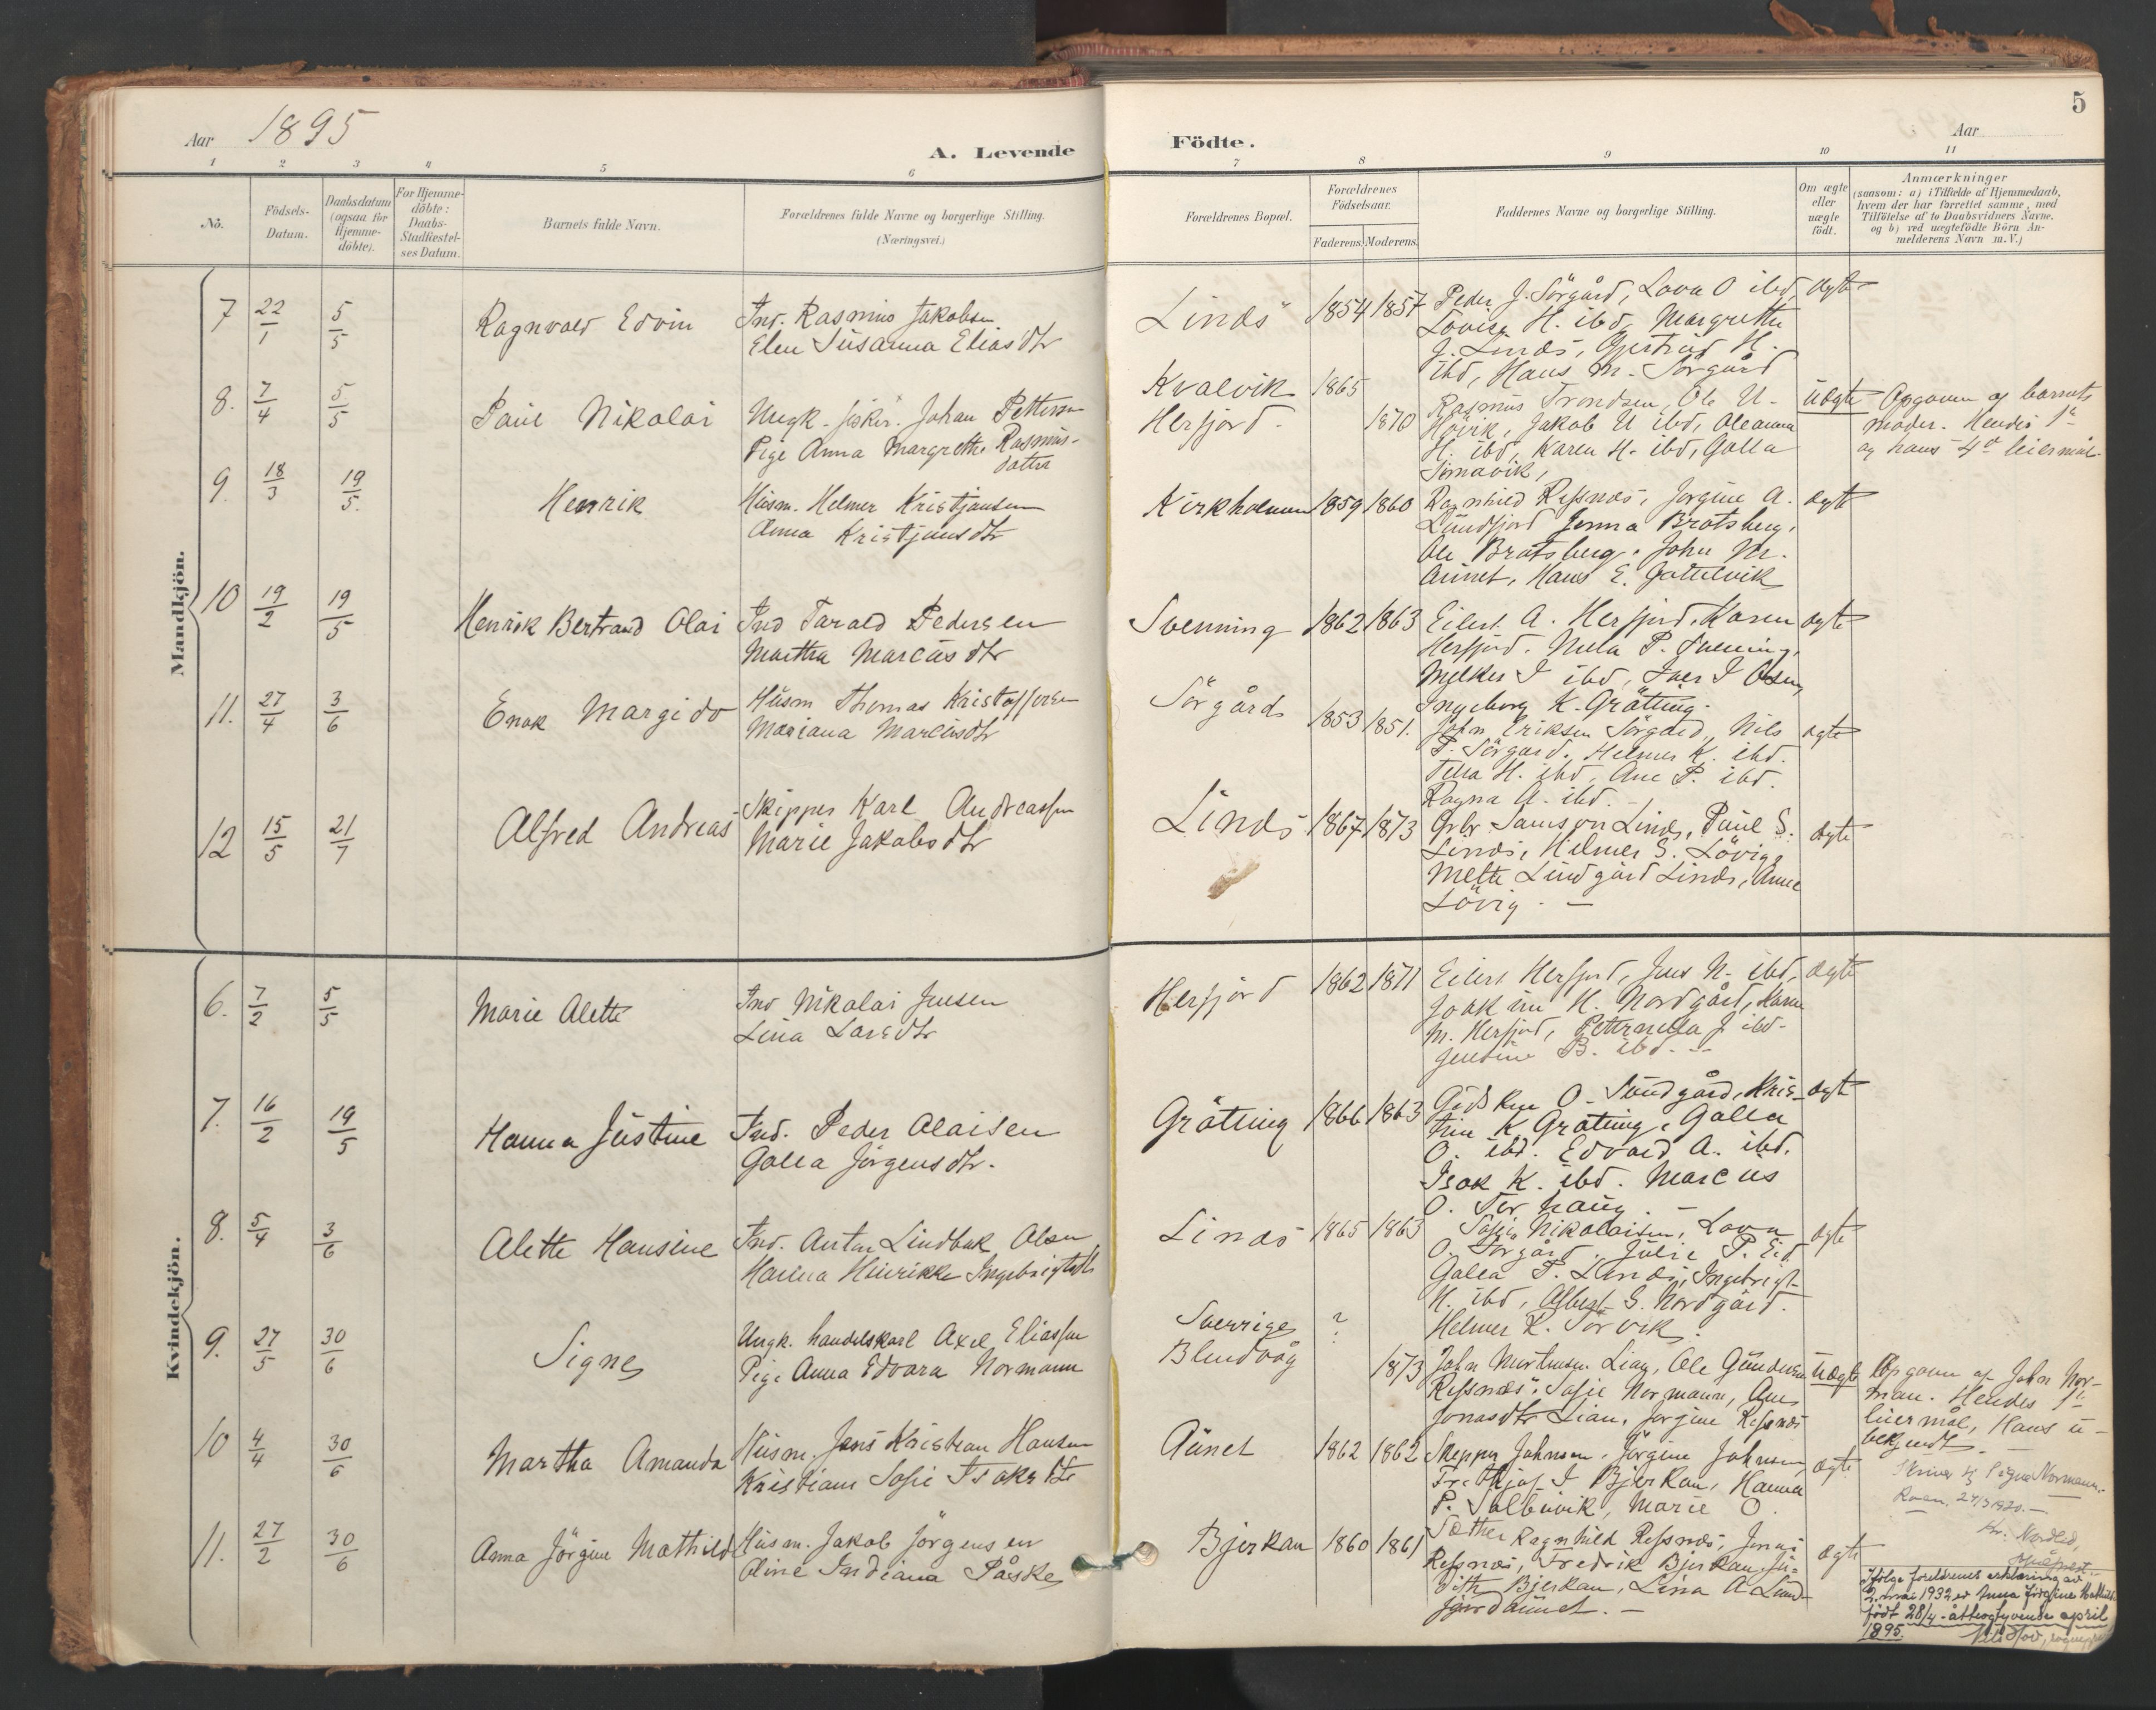 5
Aar 1895
A. Levende Födte.
Aar
1 2 3 4 5 6 7 8 9 10 11
No.
Födsels-Datum.
Daabsdatum (ogsaa for Hjemme-döbte).
For Hjemme-döbte: Daabs-Stadfæstel-ses Datum.
Barnets fulde Navn.
Forældrenes fulde Navne og borgerlige Stilling. (Næringsvei.)
Forældrenes Bopæl.
Forældrenes Födselsaar.
Faderens. Moderens.
Faddernes Navne og borgerlige Stilling.
Om ægte eller uægte födt.
Anmærkninger
(saasom: a) i Tilfælde af Hjemmedaab,
hvem der har forrettet samme, med
Tilföielse af to Daabsvidners Navne.
og b) ved uægtefödte Börn An-
melderens Navn m.V.)
Mandkjön.
7 22/1 5/5 Ragnvald Edvin
Ind. Rasmus Jakobsen
Elen Susanna Eliasdtr
Linds 1854 1857
Peder J. Sörgård, Lova O ibd,
Lovise H. ibd, Margrethe
J. Linds, Gjertrud H.
ibd, Hans M. Sörgård
ægte
8. 7/4 5/5 Paul Nikolai
Ungk. fisker. Johan Pettersen
Pige Anna Margrethe Rasmus-
datter
Kvalvik 1865
Herfjord. 1870
Rasmus Trondsen, Ole U-
Høivik, Jakob U ibd, Oleanna
H. ibd, Karen H. ibd, Golla
uægte
Opgaven af barnets
moder. Hendes 1ste
og hans 4de leiermål.
9. 18/3 19/5. Henrik
Husm. Helmer Kristjansen
Anna Kristjansdtr
Kirkholmen 1859 1860
Ragnhild Refsnæs, Jørgine A.
Sundfjord Jenna Bratsberg,
Ole Bratsberg, John M.
Aunet, Hans E.
ægte
10 19/2 19/5 Henrik Bertrand Olai
Ind Tarald Pedersen
Martha Marcusdtr
Svenning 1862 1863
Eilert A. Herfjord, Karen
Herfjord. P. Svening,
I ibd, Iver I Osen,
Ingeborg K. Gråtting.
ægte
11. 27/4 3/6 Enok Margido
Husm Thomas Kristoffersen
Mariana Marcusdtr
Sörgård 1853 1851.
John Eriksen Sörgård, Nils
P. Sörgård. Helmer K. ibd.
H. ibd, Ane P. ibd.
Ragna A. ibd. -
ægte
12 15/5 21/7 Alfred Andreas
Skipper Karl Andreassen
Marie Jakobsdtr
Linds 1867 1873
Samson Linds, Paul S.
Linds, Helmer S. Lövig,
Mette Lindgård Linds, Anne
Lövig. -
ægte
Kvindekjön.
6. 7/2 5/5 Marie Alette
Ind Nikolai Jensen
Lina Larsdtr
Herfjord 1862 1871
Eilert Herfjord, Jens N. ibd,
Joakim H. Nordgård, Karen
M. Herfjord, Petternella J ibd-
Jentine B. ibd. -
ægte
7. 16/2 19/5 Hanna Justine
Ind. Peder Olaisen
Golla Jörgensdtr.
Gråtting 1866 1863
O. Sundgård, Kris-
tine K Gråtting, Golla
O. ibd. Edvard A. ibd.
Isak K. ibd. Marcus
O. Torhaug. -
ægte
8. 5/4 3/6 Alette Hansine
Ind. Anton Lindbak Olsen
Hanna Henrikke Ingebrigtsdtr
Linds 1865 1863
Sofie Nikolaisen, Lova
O. Sörgård, Julie P. Eid
Golla P. Linds, Ingebrigt
N. ibd, Albert S. Nordgård.
Helmer R. Sörvik.
ægte
9. 27/5 30/6 Signe
Ungk. handelskarl Axel Eliassen
Pige Anna Edvara Normann
Sverrige ?
Blindvåg 1873
John Mortensen Lian, Ole Gundersen
Refsnæs, Sofie Normann, Ane
Jonasdtr Lian, Jörgine Refsnæs
uægte
Opgaven af John Nor-
man. Hendes 1ste
leiermål, Hans u-
bekjendt.
Skriver sig Signe Normann.-
Roan. 24/3 1920.-
10 4/4 30/6 Martha Amanda
Husm. Jens Kristian Hansen
Kristiane Sofie Isaksdtr
Aunet 1862 1862
Skipper Johnsen, Jörgine Johnsen,
Fridthjof I Bjerkan, Hanna
P. Sulbuvik, Marie O.
Sæther
ægte
11. 27/2 30/6 Anna Jörgine Mathilde
Husm. Jakob Jörgensen
Oline Indiana Påske
Bjerkan 1860 1861
Ragnhild Refsnæs, Jonas
Refsnæs, Fredrik Bjerkan, Ju-
dith Bjerkan, Lina A. Sund-
fjord aunet. -
ægte
Ifölge foreldrenes erklæring av
2. mai 1932 er Anna Jörgine Mathilde
född 28/4 - åtteogtyvende april
1895.